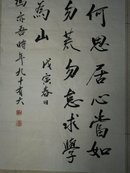 何思居心當如
勿荒勿怠求學
為山戊寅春日
馮亦吾時年九十有六